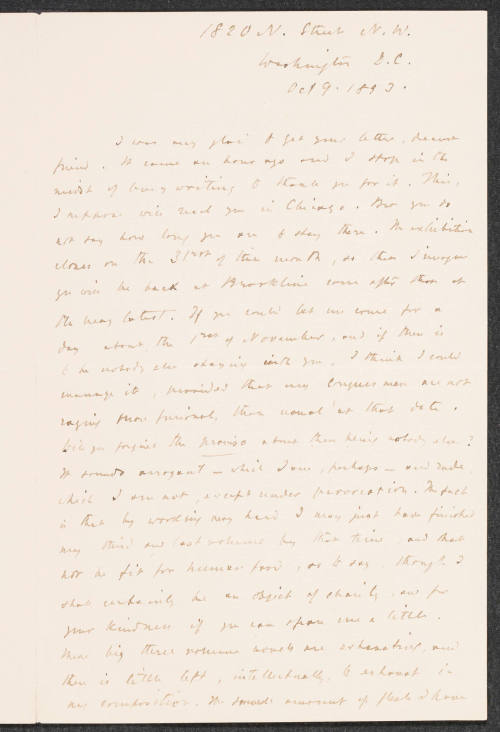 1820 N. Street N.W.
Washington D.C.
Oct 9. 1893.
I was very glad to get your letter, dearest
friend. It came an hour ago and I stop in the
midst of busy writing to thank you for it. This,
I suppose will reach you in Chicago. But you do
not say how long you are to stay there. The exhibition
closes on the 31rst of this month, so that I imagine
you will be back at Brookline soon after that at
the very latest. If you could let me come for a
day about the 1rst of November, and if there is
to be nobody else staying with you, I think I could
manage it, provided that my Congressmen are not
raging more furiously than usual at that date.
Will you forgive the proviso about there being nobody else?
It sounds arrogant – which I am, perhaps – and rude,
which I am not, except under provocation. The fact
is that by working very hard I may just have finished
my third and last volume by that time, and shall
not be fit for human food, so to say, though I
shall certainly be an object of charity and for
your kindness if you can spare me a little.
These big three volume novels are exhausting, and
there is little left, intellectually, to exhaust in
my composition. The small amount of flesh I have